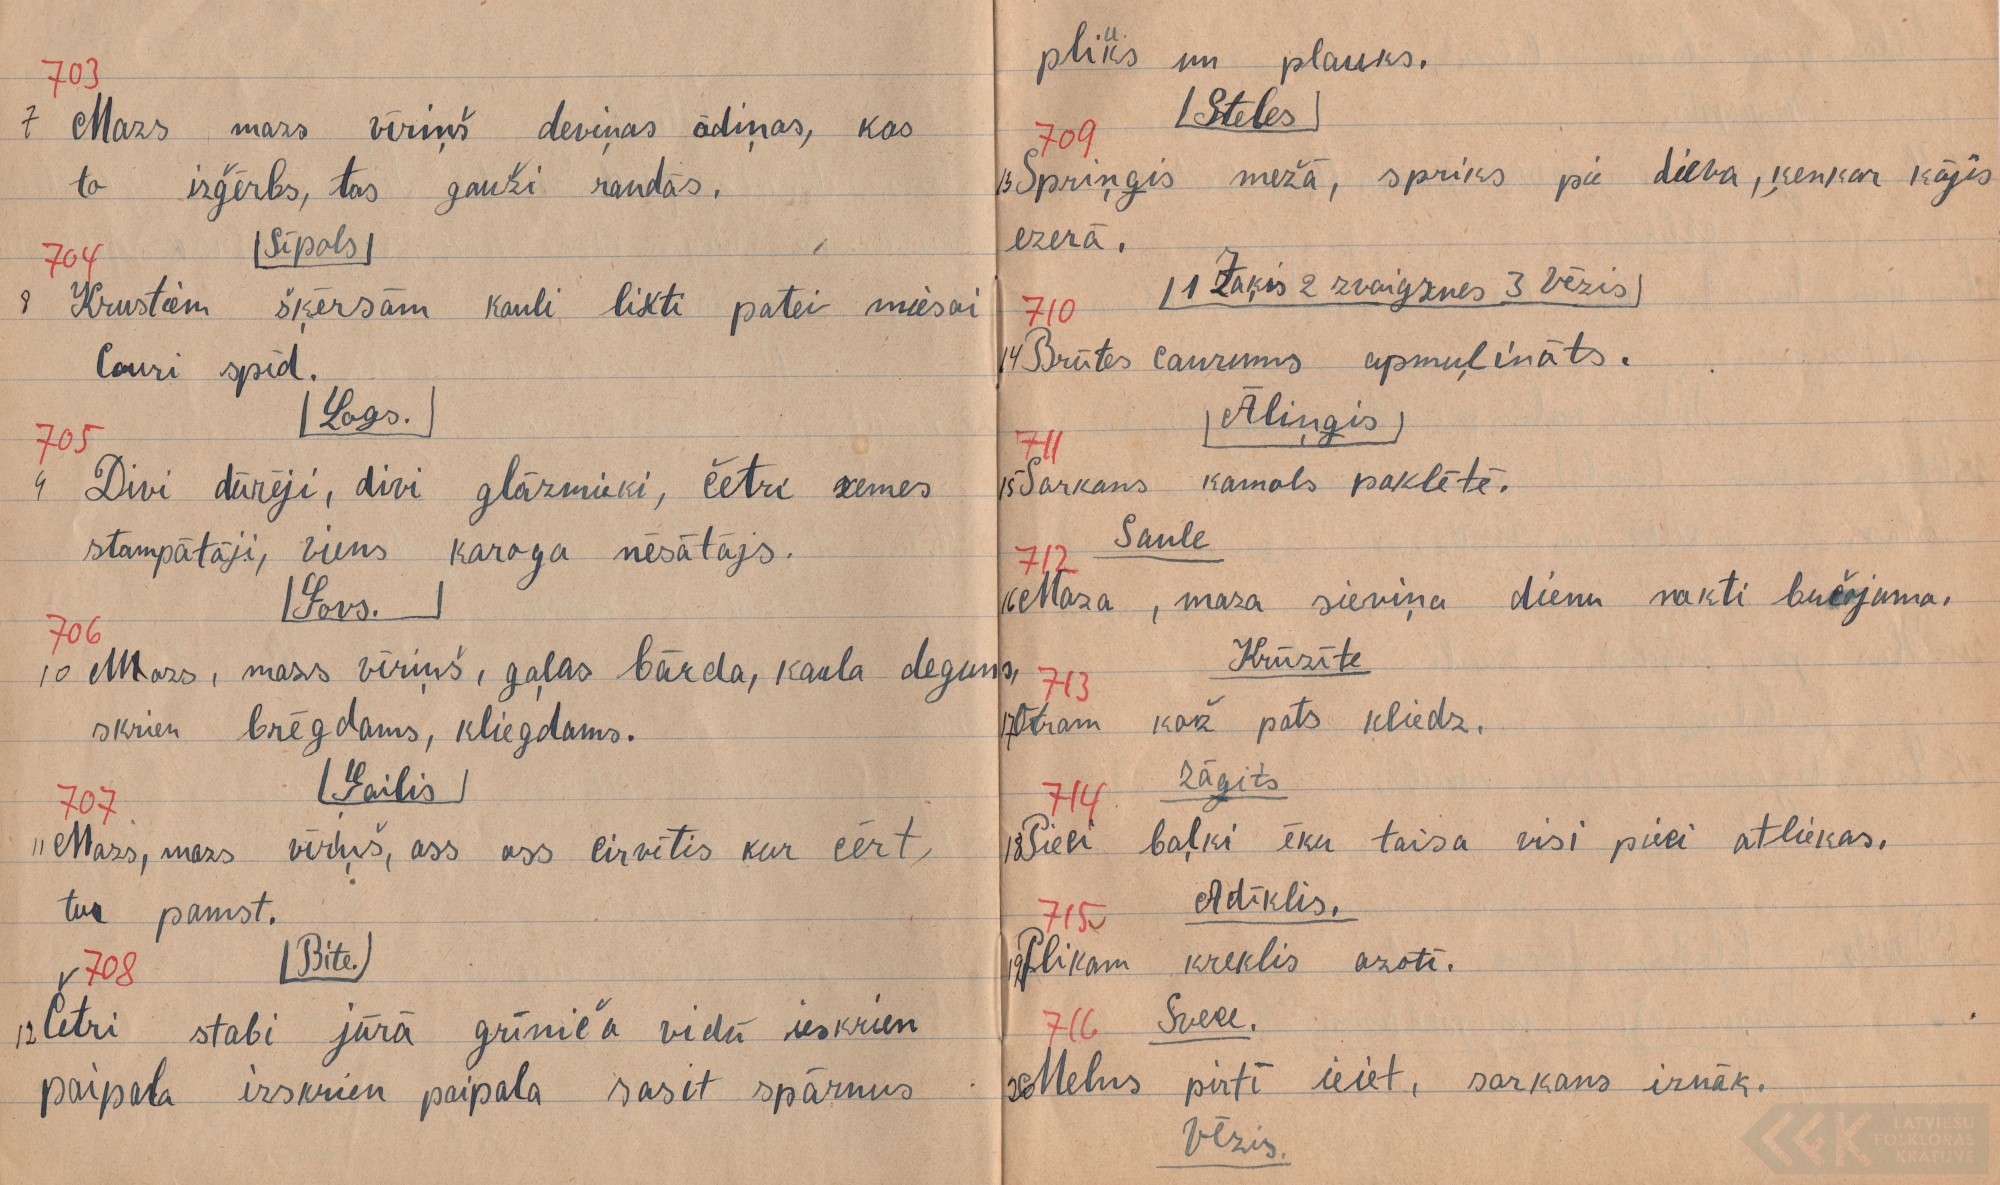 703
7 Mazs mazs vīriņš deviņas ādiņas, kas
to izģērbs, tas gauži raudās.
|Sīpols|
704
8 Krustiem šķērsām kauli likti patei miesai
cauri spīd.
|Logs.|
705
9 Divi dūrēji, divi glāzmieki, četri zemes
stampātāji, viens karoga nēsātājs.
|Govs.|
706
10 Mazs, mazs vīriņš, gaļas bārda, kaula deguns,
skrien brēgdams, kliegdams.
|Gailis|
707
11 Mazs, mazs vīriņš, ass ass cirvītis kur cērt,
tur pamst.
|Bite.|
v 708
12 Četri stabi jūrā grīniča vidū ieskrien
paipala izskrien paipala sasit spārnus
plikš un plauks.
|Steles|
709
13 Spriņģis mežā, spriks pie dieva, ķenkar kājis
ezerā.
|1 Zaķis 2 zvaigznes 3 Vēzis|
710
14 Brūtes caurums apmuļināts.
|Āliņģis|
711
15 Sarkans kamols paklētē.
Saule
712
16 Maza, maza sieviņa dienu nakti bučojama.
Krūzīte
713
17 Otram kož pats kliedz.
Zāģits
714
18 Pieci baļķi ēku taisa visi pieci atliekas.
Adīklis.
715
19 Plikam kreklis azotī.
Svece.
716
20 Melns pirtī ieiet, sarkans iznāk.
Vēzis.
LATVIEŠU
FOLKLORAS
KRĀTUVE